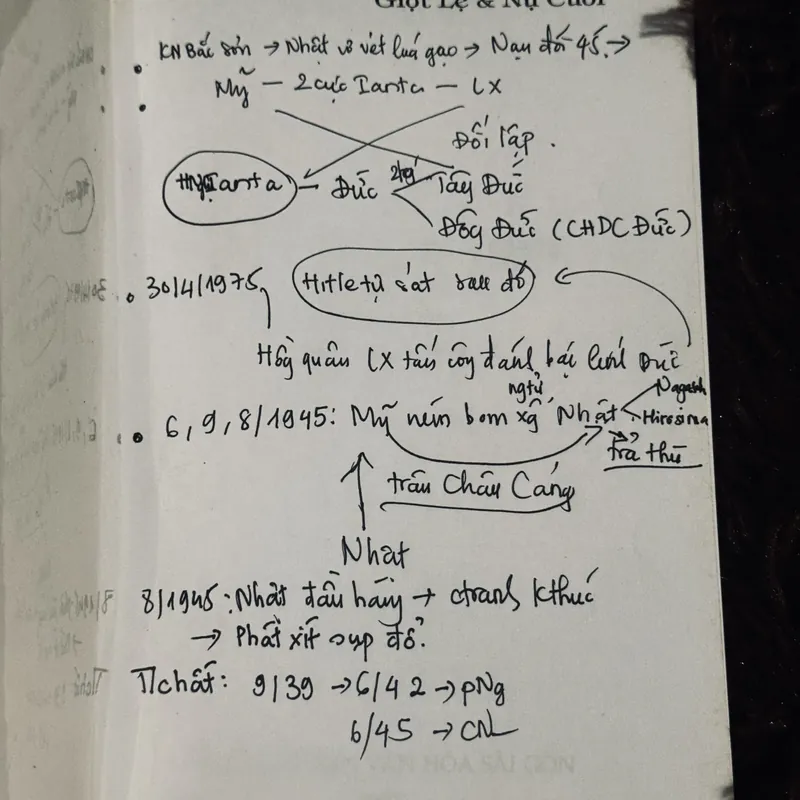 Giọt Lệ & Nụ Cười
• KN Bắc Sơn → Nhật vơ vét luá gạo → Nạn đói 45. →
• Mỹ — 2 cực Ianta — LX
Đối lập.
HNIanta — Đức Tây Đức
Đôg Đức (CHDC Đức)
• 30/4/1975 Hitle tự sát sau đó
Hồg quân LX tấn côg đánh bại lính Đức
ngtử
• 6, 9, 8/1945: Mỹ ném bom xg Nhật Nagash
Hirosima
trả thù
trân Châu Cảng
Nhat
8/1945: Nhật đầu hàng → ctranh kthúc
→ Phát xít sụp đổ.
T/chất: 9/39 → 6/42 → pNg
6/45 → CN
HÓA SÀI GÒN